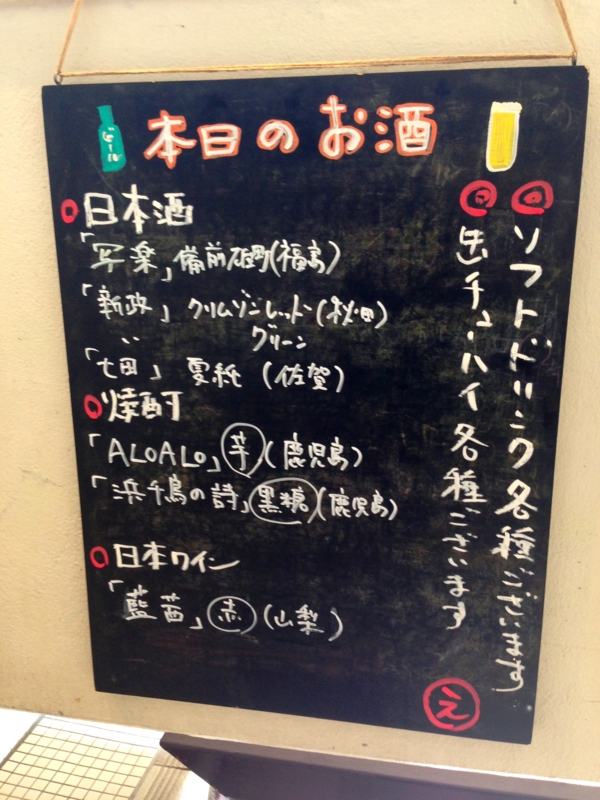 本日のお酒
ビール
日本酒
「写楽」備前雄町(福島)
「新政」クリムゾンレッド(秋田)
〃 グリーン
「七田」夏純(佐賀)
焼酎
「ALOALO」芋(鹿児島)
「浜千鳥の詩」黒糖(鹿児島)
日本ワイン
「藍茜」赤(山梨)
ソフトドリンク各種ございます
缶チューハイ各種ございます
え